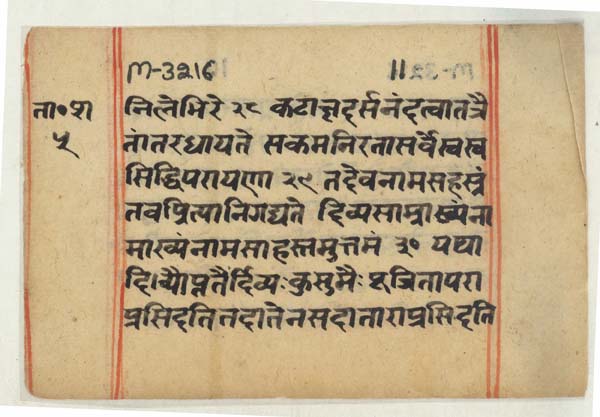 M-3216
ता० श
५
निलेभिरे २८ कटाक्षदर्सनंदत्वातत्रै
तांतरधायते सकमनिरतासर्वेस्वस्व
सिद्धिपरायणा २९ तदेवनामसहस्त्रं
तवप्रित्यानिगद्यते दिव्यसाम्राज्यंना
माख्यंनामसाहस्तमुत्तमं ३० पद्या
दिव्यौप्नतैर्दिव्यः कुसुमैः पूजितापरा
प्रसिदतितदातेनसदाताराप्रसिदति